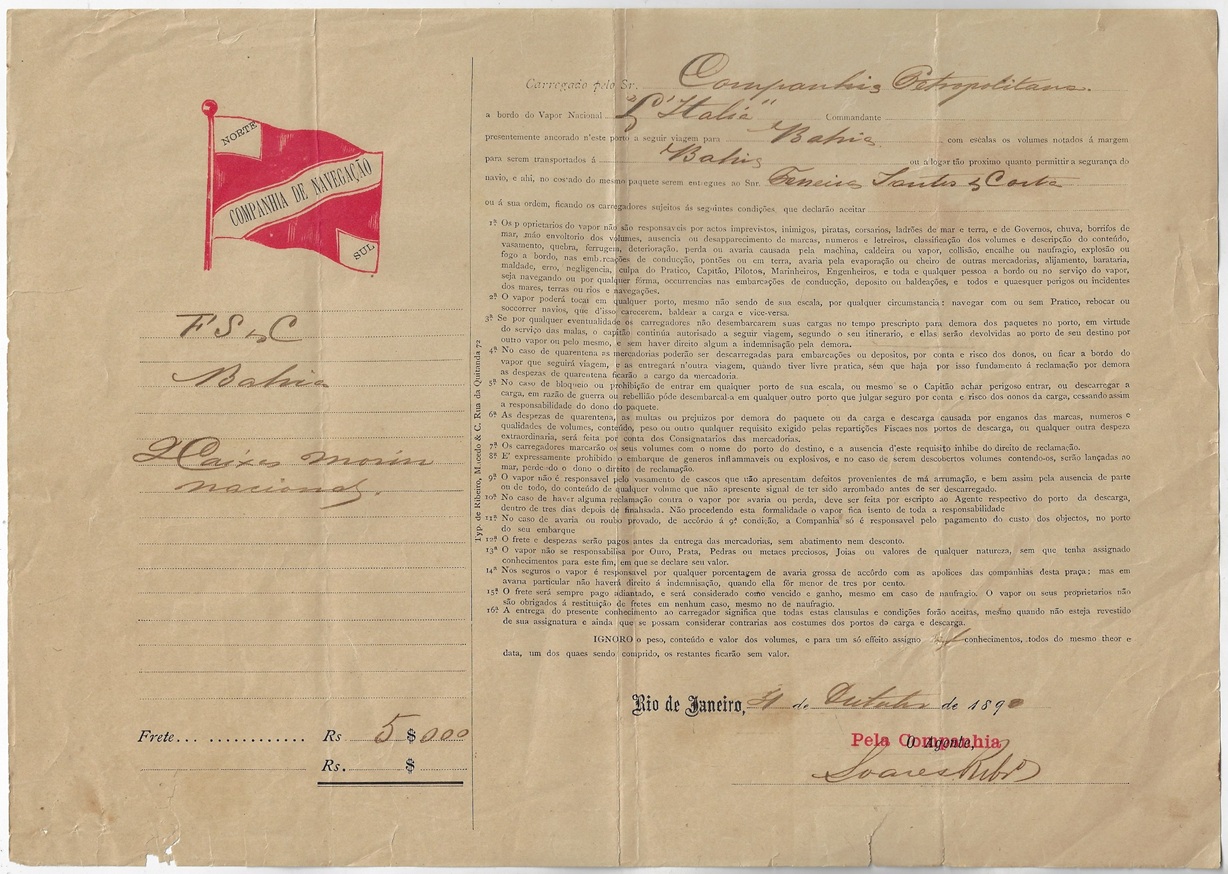 NORTE
COMPANHIA DE NAVEGAÇÃO
SUL
F S & C
Bahia
2 Caixas morin
nacional.
Frete... ............ Rs 5 $ 000
Rs. $
Typ. de Ribeiro, Macedo & C. Rua da Quitanda 72
Carregado pelo Sr. Companhia Petropolitana.
a bordo do Vapor Nacional "Italia" Commandante
presentemente ancorado n'este porto a seguir viagem para Bahia com escalas os volumes notados á margem
para serem transportados á Bahia ou á logar tão proximo quanto permittir a segurança do
navio, e ahi, no costado do mesmo paquete serem entregues ao Snr. Ferreira Santos & Costa
ou á sua ordem, ficando os carregadores sujeitos ás seguintes condições, que declarão aceitar
1ª Os p oprietarios do vapor não são responsaveis por actos imprevistos, inimigos, piratas, corsarios, ladrões de mar e terra, e de Governos, chuva, borrifos de
mar, máo envoltorio dos volumes, ausencia ou desapparecimento de marcas, numeros e letreiros, classificação dos volumes e descripção do conteúdo,
vasamento, quebra, ferrugem, deterioração, perda ou avaria causada pela machina, caldeira ou vapor, collisão, encalhe ou naufragio, explosão ou
fogo a bordo, nas embarcações de conducção, pontões ou em terra, avaria pela evaporação ou cheiro de outras mercadorias, alijamento, barataria,
maldade, erro, negligencia, culpa do Pratico, Capitão, Pilotos, Marinheiros, Engenheiros, e toda e qualquer pessoa a bordo ou no serviço do vapor,
seja navegando ou por qualquer fórma, occurrencias nas embarcações de conducção, deposito ou baldeações, e todos e quaesquer perigos ou incidentes
dos mares, terras ou rios e navegações.
2ª O vapor poderá tocar em qualquer porto, mesmo não sendo de sua escala, por qualquer circumstancia: navegar com ou sem Pratico, rebocar ou
soccorrer navios, que d'isso carecerem, baldear a carga e vice-versa.
3ª Se por qualquer eventualidade os carregadores não desembarcarem suas cargas no tempo prescripto para demora dos paquetes no porto, em virtude
do serviço das malas, o capitão continúa autorisado a seguir viagem, segundo o seu itinerario, e ellas serão devolvidas ao porto de seu destino por
outro vapor ou pelo mesmo, e sem haver direito algum a indemnisação pela demora.
4ª No caso de quarentena as mercadorias poderão ser descarregadas para embarcações ou depositos, por conta e risco dos donos, ou ficar a bordo do
vapor que seguirá viagem, e as entregará n'outra viagem, quando tiver livre pratica, sem que haja por isso fundamento á reclamação por demora
as despezas de quarentena ficarão a cargo da mercadoria.
5ª No caso de bloqueio ou prohibição de entrar em qualquer porto de sua escala, ou mesmo se o Capitão achar perigoso entrar, ou descarregar a
carga, em razão de guerra ou rebellião póde desembarcal-a em qualquer outro porto que julgar seguro por conta e risco dos donos da carga, cessando assim
a responsabilidade do dono do paquete.
6ª As despezas de quarentena, as multas ou prejuizos por demora do paquete ou da carga e descarga causada por enganos das marcas, numeros e
qualidades de volumes, conteúdo, peso ou outro qualquer requisito exigido pelas repartições Fiscaes nos portos de descarga, ou qualquer outra despeza
extraordinaria, será feita por conta dos Consignatarios das mercadorias.
7ª Os carregadores marcarão os seus volumes com o nome do porto do destino, e a ausencia d'este requisito inhibe do direito de reclamação.
8ª E' expressamente prohibido o embarque de generos inflammaveis ou explosivos, e no caso de serem descobertos volumes contendo-os, serão lançadas ao
mar, perdendo o dono o direito de reclamação.
9ª O vapor não é responsavel pelo vasamento de cascos que não apresentam defeitos provenientes de má arrumação, e bem assim pela ausencia de parte
ou de todo, do conteúdo de qualquer volume que não apresente signal de ter sido arrombado antes de ser descarregado.
10ª No caso de haver alguma reclamação contra o vapor por avaria ou perda, deve ser feita por escripto ao Agente respectivo do porto da descarga,
dentro de tres dias depois de finalisada. Não procedendo esta formalidade o vapor fica isento de toda a responsabilidade
11ª No caso de avaria ou roubo provado, de accôrdo á 9ª condição, a Companhia só é responsavel pelo pagamento do custo dos objectos, no porto
do seu embarque
12ª O frete e despezas serão pagos antes da entrega das mercadorias, sem abatimento nem desconto.
13ª O vapor não se responsabilisa por Ouro, Prata, Pedras ou metaes preciosos, Joias ou valores de qualquer natureza, sem que tenha assignado
conhecimentos para este fim, em que se declare seu valor.
14ª Nos seguros o vapor é responsavel por qualquer porcentagem de avaria grossa de accôrdo com as apolices das companhias desta praça: mas em
avaria particular não haverá direito á indemnisação, quando ella fôr menor de tres por cento.
15ª O frete será sempre pago adiantado, e será considerado como vencido e ganho, mesmo em caso de naufragio. O vapor ou seus proprietarios não
são obrigados á restituição de fretes em nenhum caso, mesmo no de naufragio.
16ª A entrega do presente conhecimento ao carregador significa que todas estas clausulas e condições forão aceitas, mesmo quando não esteja revestido
de sua assignatura e ainda que se possam considerar contrarias aos costumes dos portos da carga e descarga.
IGNORO o peso, conteúdo e valor dos volumes, e para um só effeito assigno conhecimentos, todos do mesmo theor e
data, um dos quaes sendo comprido, os restantes ficarão sem valor.
Rio de Janeiro, de Outubro de 1890
Pela Companhia
O Agente,
Soares Ribr